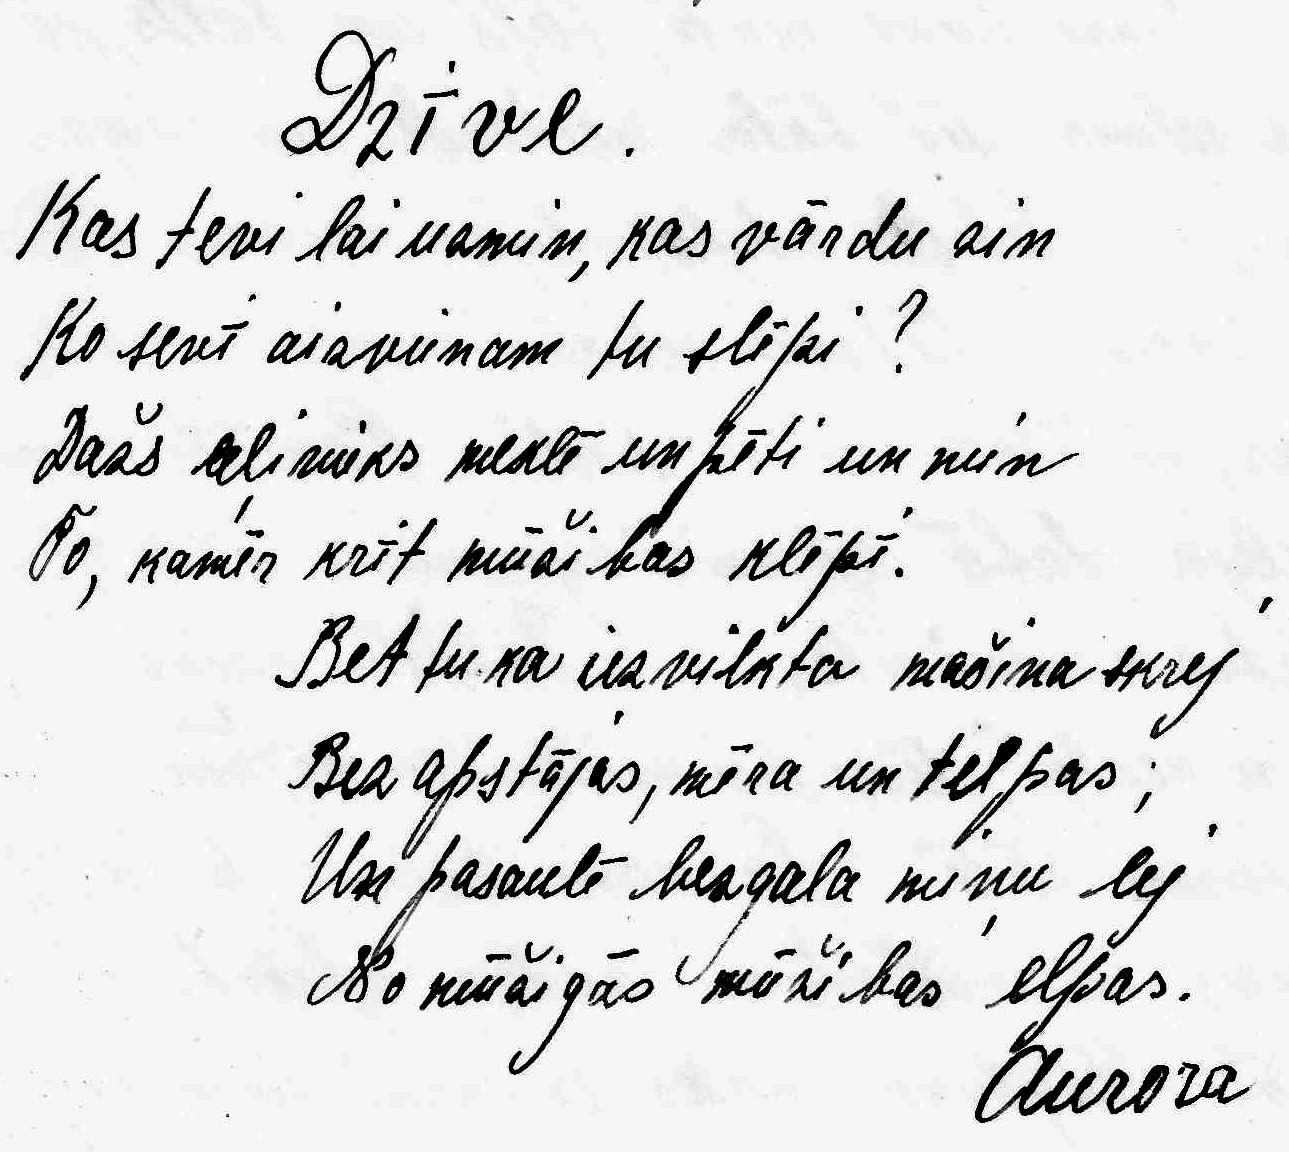 Dzīve.
Kas tevi lai uzmin, kas vārdu zin
Ko sevī aizvienam tu slēpi?
Dažs cilvieks meklē un pēti un min
To, kamēr krīt mūžības klēpī.
Bet tu kā uzvilkta mašina skrej
Bez apstājas, mēra un telpas;
Uz pasaulē bezgala miņu lej
No mūžigās mūžibas elpas.
Aurora